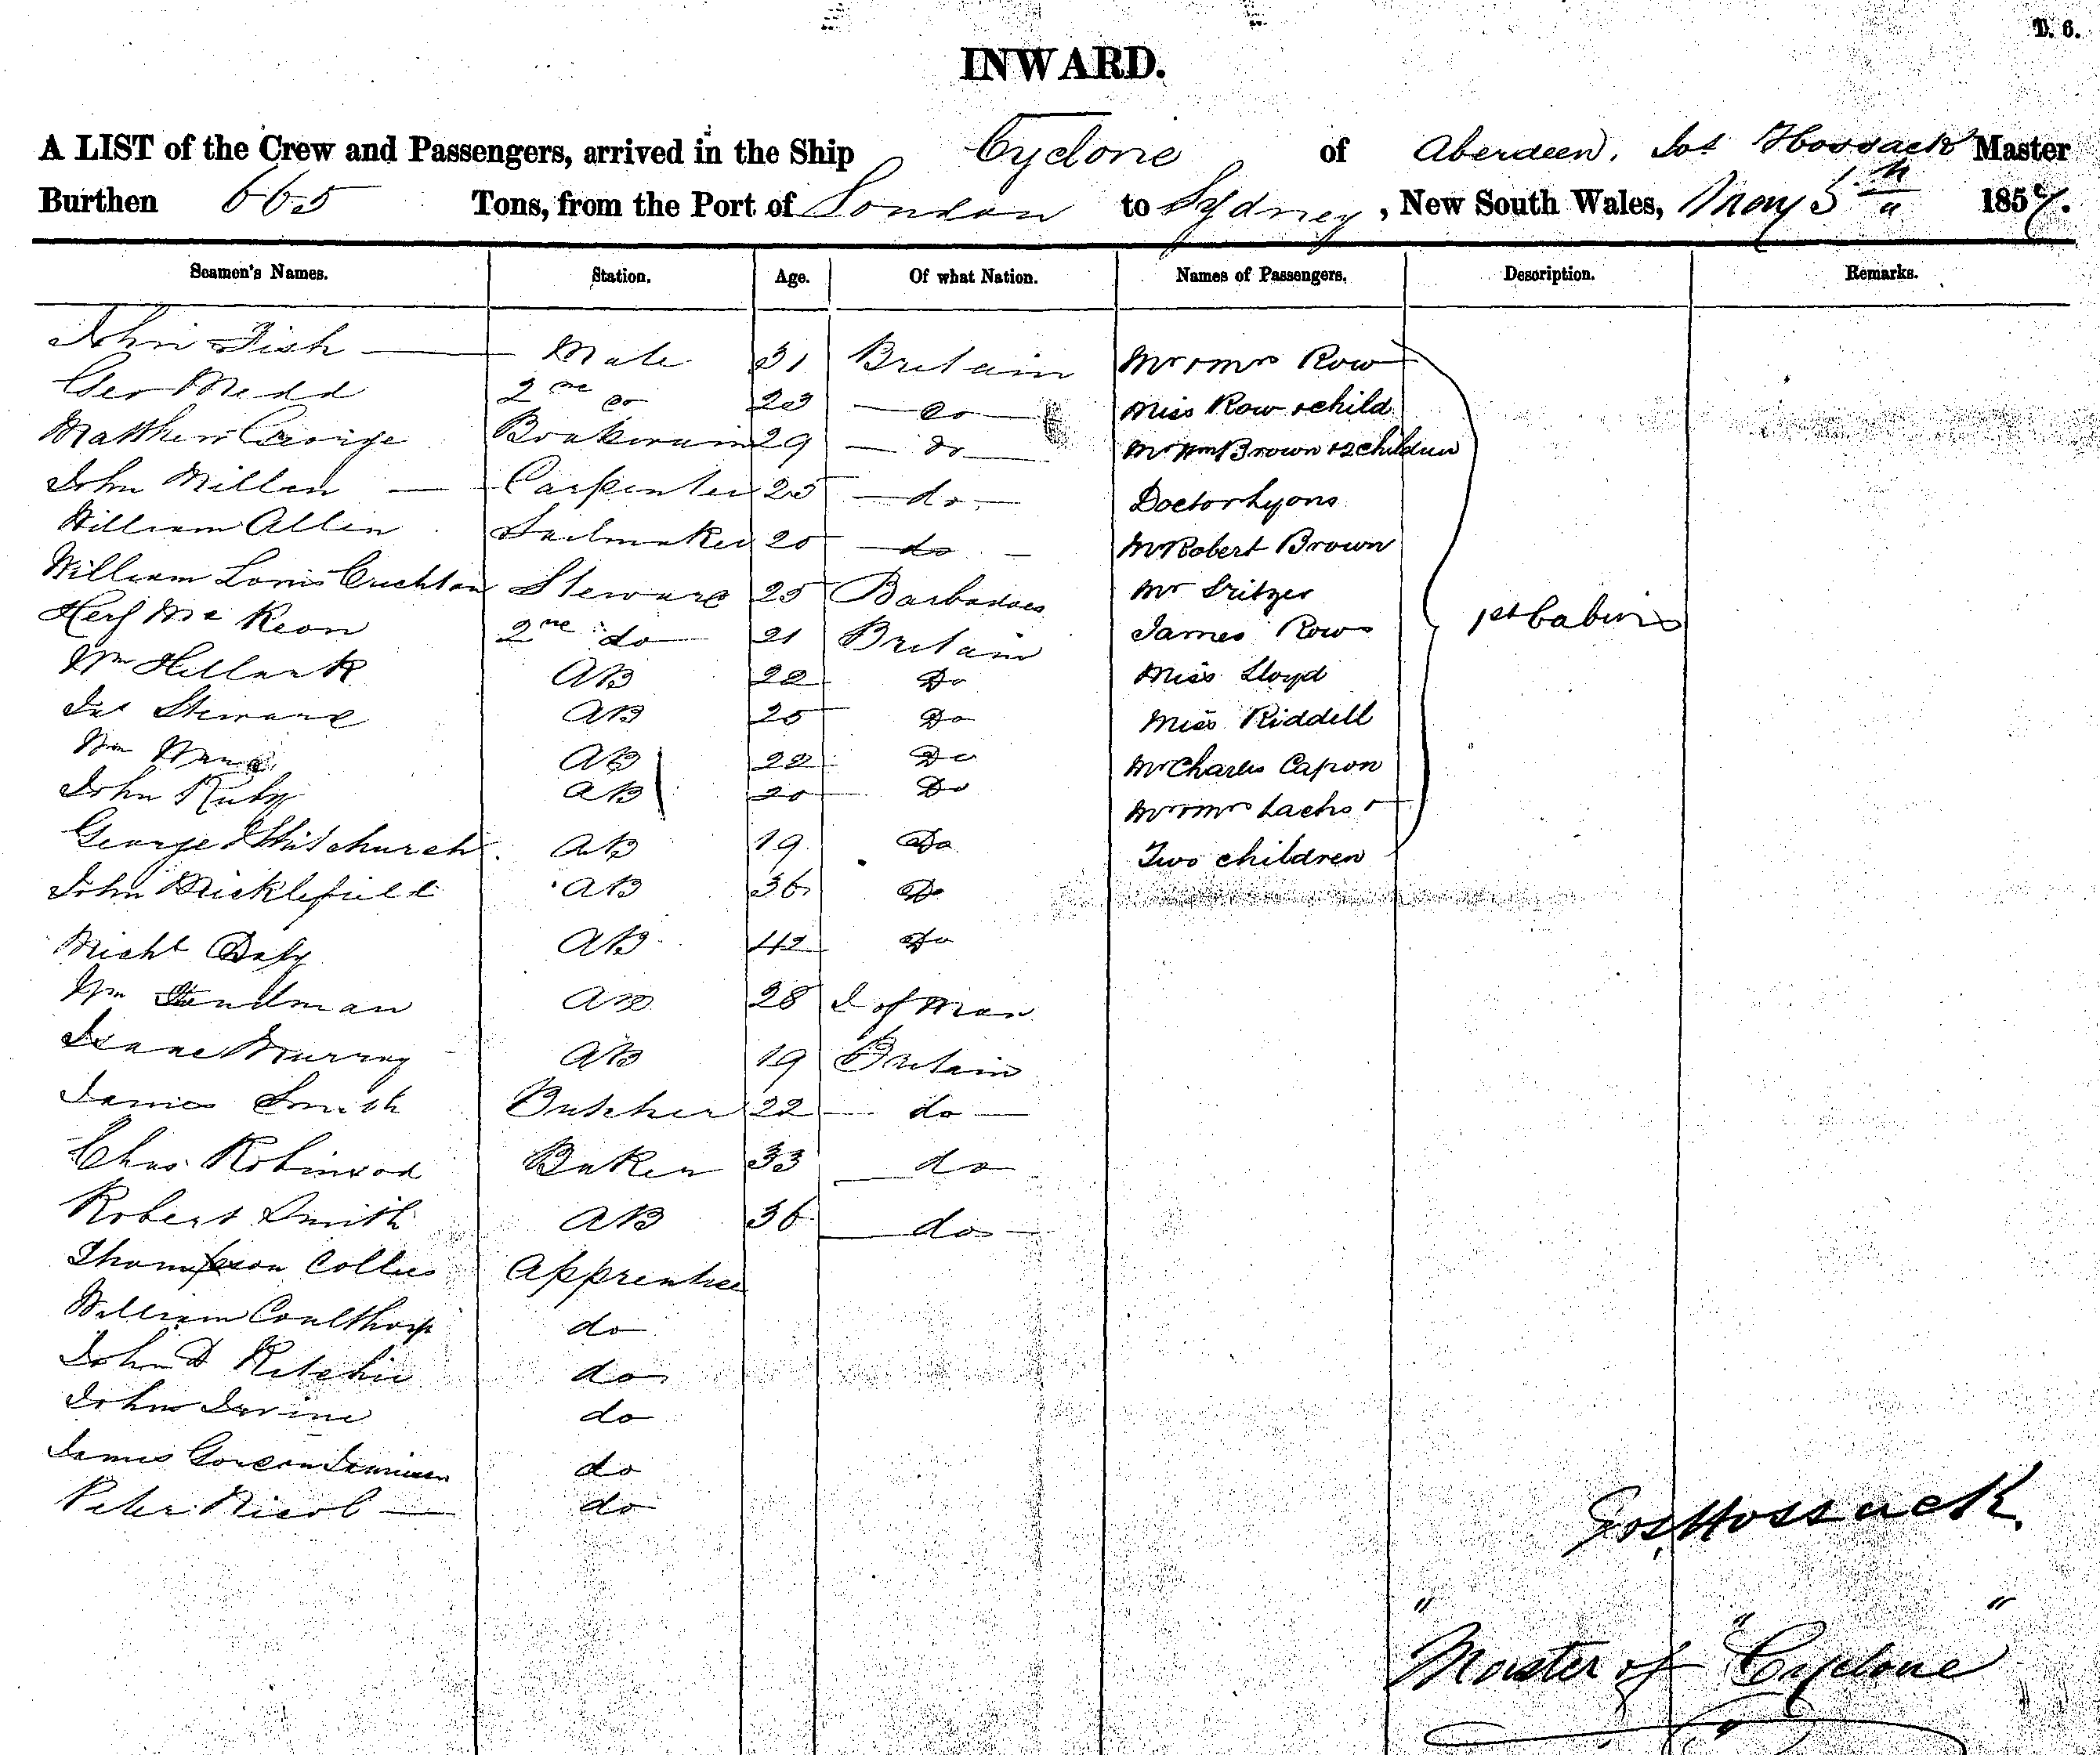 D. 6.
INWARD.
A LIST of the Crew and Passengers, arrived in the Ship Cyclone of Aberdeen, Jos Hossack Master
Burthen 665 Tons, from the Port of London to Sydney, New South Wales, May 5th 1857.
Seamen's Names. Station. Age. Of what Nation. Names of Passengers. Description. Remarks.
John Fish Mate 31 Britain Mr & Mrs Row
Geo Medd 2nd do 23 do Miss Row & child
Matthew George Boatswain 29 do Mr Wm Brown & 2 Children
John Millen Carpenter 25 do Doctor Lyons
William Allen Sailmaker 20 do Mr Robert Brown
William Louis Crichton Steward 25 Barbadoes Mr Sritzer
Mc Keon 2nd do 21 Britain James Row 1st Cabins
Wm AB 22 Do Miss Lloyd
Jas Steward AB 25 Do Miss Riddell
Wm AB 22 Do Mr Charles Capon
John Ruby AB 20 Do Mr & Mrs Lachs &
George AB 19 Do Two children
John Micklefield AB 36 Do
Michl Daly AB 42 Do
Wm AB 28 I of Man
Isaac Murray AB 19 Britain
James Smith Butcher 22 do
Chas Robinson Baker 33 do
Robert Smith AB 36 do
Thompson Collies Apprentice
William Coulthorp do
John D Ritchie do
John Irvine do
James Gordon Jamieson do
Peter Nicol do
Jos. Hossack
" " "
Master of "Cyclone"